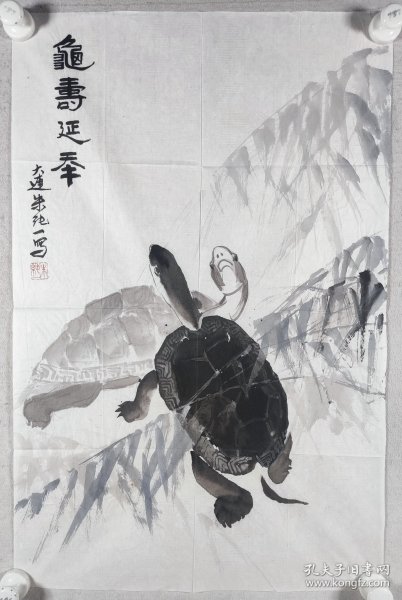 龜壽延年
大連朱純一寫
孔夫子旧书网
www.kongfz.com